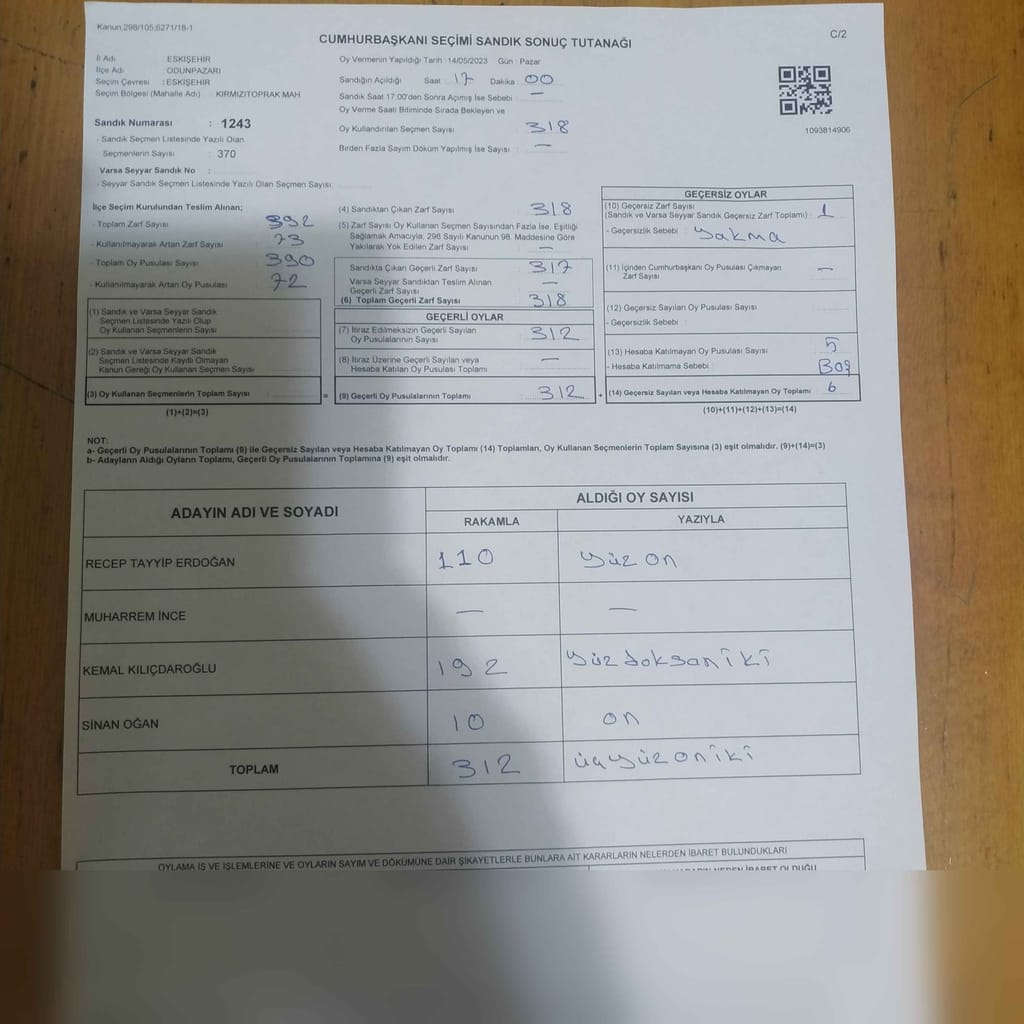 Kanun:298/105;6271/18-1
C/2
CUMHURBAŞKANI SEÇİMİ SANDIK SONUÇ TUTANAĞI
İl Adı : ESKİŞEHİR
İlçe Adı : ODUNPAZARI
Seçim Çevresi : ESKİŞEHİR
Seçim Bölgesi (Mahalle Adı) : KIRMIZITOPRAK MAH.
Sandık Numarası : 1243
- Sandık Seçmen Listesinde Yazılı Olan
Seçmenlerin Sayısı : 370
Varsa Seyyar Sandık No :
- Seyyar Sandık Seçmen Listesinde Yazılı Olan Seçmen Sayısı:
Oy Vermenin Yapıldığı Tarih : 14/05/2023 Gün : Pazar
Sandığın Açıldığı Saat : 17 Dakika : 00
Sandık Saat 17:00'den Sonra Açımış İse Sebebi : —
Oy Verme Saati Bitiminde Sırada Bekleyen ve
Oy Kullandırılan Seçmen Sayısı : 318
Birden Fazla Sayım Döküm Yapılmış İse Sayısı : —
1093814906
İlçe Seçim Kurulundan Teslim Alınan;
- Toplam Zarf Sayısı : 392
- Kullanılmayarak Artan Zarf Sayısı : 73
- Toplam Oy Pusulası Sayısı : 390
- Kullanılmayarak Artan Oy Pusulası : 72
(1) Sandık ve Varsa Seyyar Sandık
Seçmen Listesinde Yazılı Olup
Oy Kullanan Seçmenlerin Sayısı :
(2) Sandık ve Varsa Seyyar Sandık
Seçmen Listesinde Kayıtlı Olmayan
Kanun Gereği Oy Kullanan Seçmen Sayısı :
(3) Oy Kullanan Seçmenlerin Toplam Sayısı :
(1)+(2)=(3)
(4) Sandıktan Çıkan Zarf Sayısı : 318
(5) Zarf Sayısı Oy Kullanan Seçmen Sayısından Fazla İse, Eşitliği
Sağlamak Amacıyla; 298 Sayılı Kanunun 98. Maddesine Göre
Yakılarak Yok Edilen Zarf Sayısı : —
Sandıkta Çıkan Geçerli Zarf Sayısı : 317
Varsa Seyyar Sandıktan Teslim Alınan
Geçerli Zarf Sayısı : —
(6) Toplam Geçerli Zarf Sayısı : 318
GEÇERLİ OYLAR
(7) İtiraz Edilmeksizin Geçerli Sayılan
Oy Pusulalarının Sayısı : 312
(8) İtiraz Üzerine Geçerli Sayılan veya
Hesaba Katılan Oy Pusulası Toplamı : —
= (9) Geçerli Oy Pusulalarının Toplamı : 312 +
GEÇERSİZ OYLAR
(10) Geçersiz Zarf Sayısı
(Sandık ve Varsa Seyyar Sandık Geçersiz Zarf Toplamı) : 1
- Geçersizlik Sebebi : Yakma
(11) İçinden Cumhurbaşkanı Oy Pusulası Çıkmayan
Zarf Sayısı : —
(12) Geçersiz Sayılan Oy Pusulası Sayısı :
- Geçersizlik Sebebi :
(13) Hesaba Katılmayan Oy Pusulası Sayısı : 5
- Hesaba Katılmama Sebebi : Boş
(14) Geçersiz Sayılan veya Hesaba Katılmayan Oy Toplamı : 6
(10)+(11)+(12)+(13)=(14)
NOT:
a- Geçerli Oy Pusulalarının Toplamı (9) ile Geçersiz Sayılan veya Hesaba Katılmayan Oy Toplamı (14) Toplamları, Oy Kullanan Seçmenlerin Toplam Sayısına (3) eşit olmalıdır. (9)+(14)=(3)
b- Adayların Aldığı Oyların Toplamı, Geçerli Oy Pusulalarının Toplamına (9) eşit olmalıdır.
ADAYIN ADI VE SOYADI
ALDIĞI OY SAYISI
RAKAMLA YAZIYLA
RECEP TAYYİP ERDOĞAN 110 yüz on
MUHARREM İNCE — —
KEMAL KILIÇDAROĞLU 192 yüzdoksaniki
SİNAN OĞAN 10 on
TOPLAM 312 üçyüzoniki
OYLAMA İŞ VE İŞLEMLERİNE VE OYLARIN SAYIM VE DÖKÜMÜNE DAİR ŞİKAYETLERLE BUNLARA AİT KARARLARIN NELERDEN İBARET BULUNDUKLARI